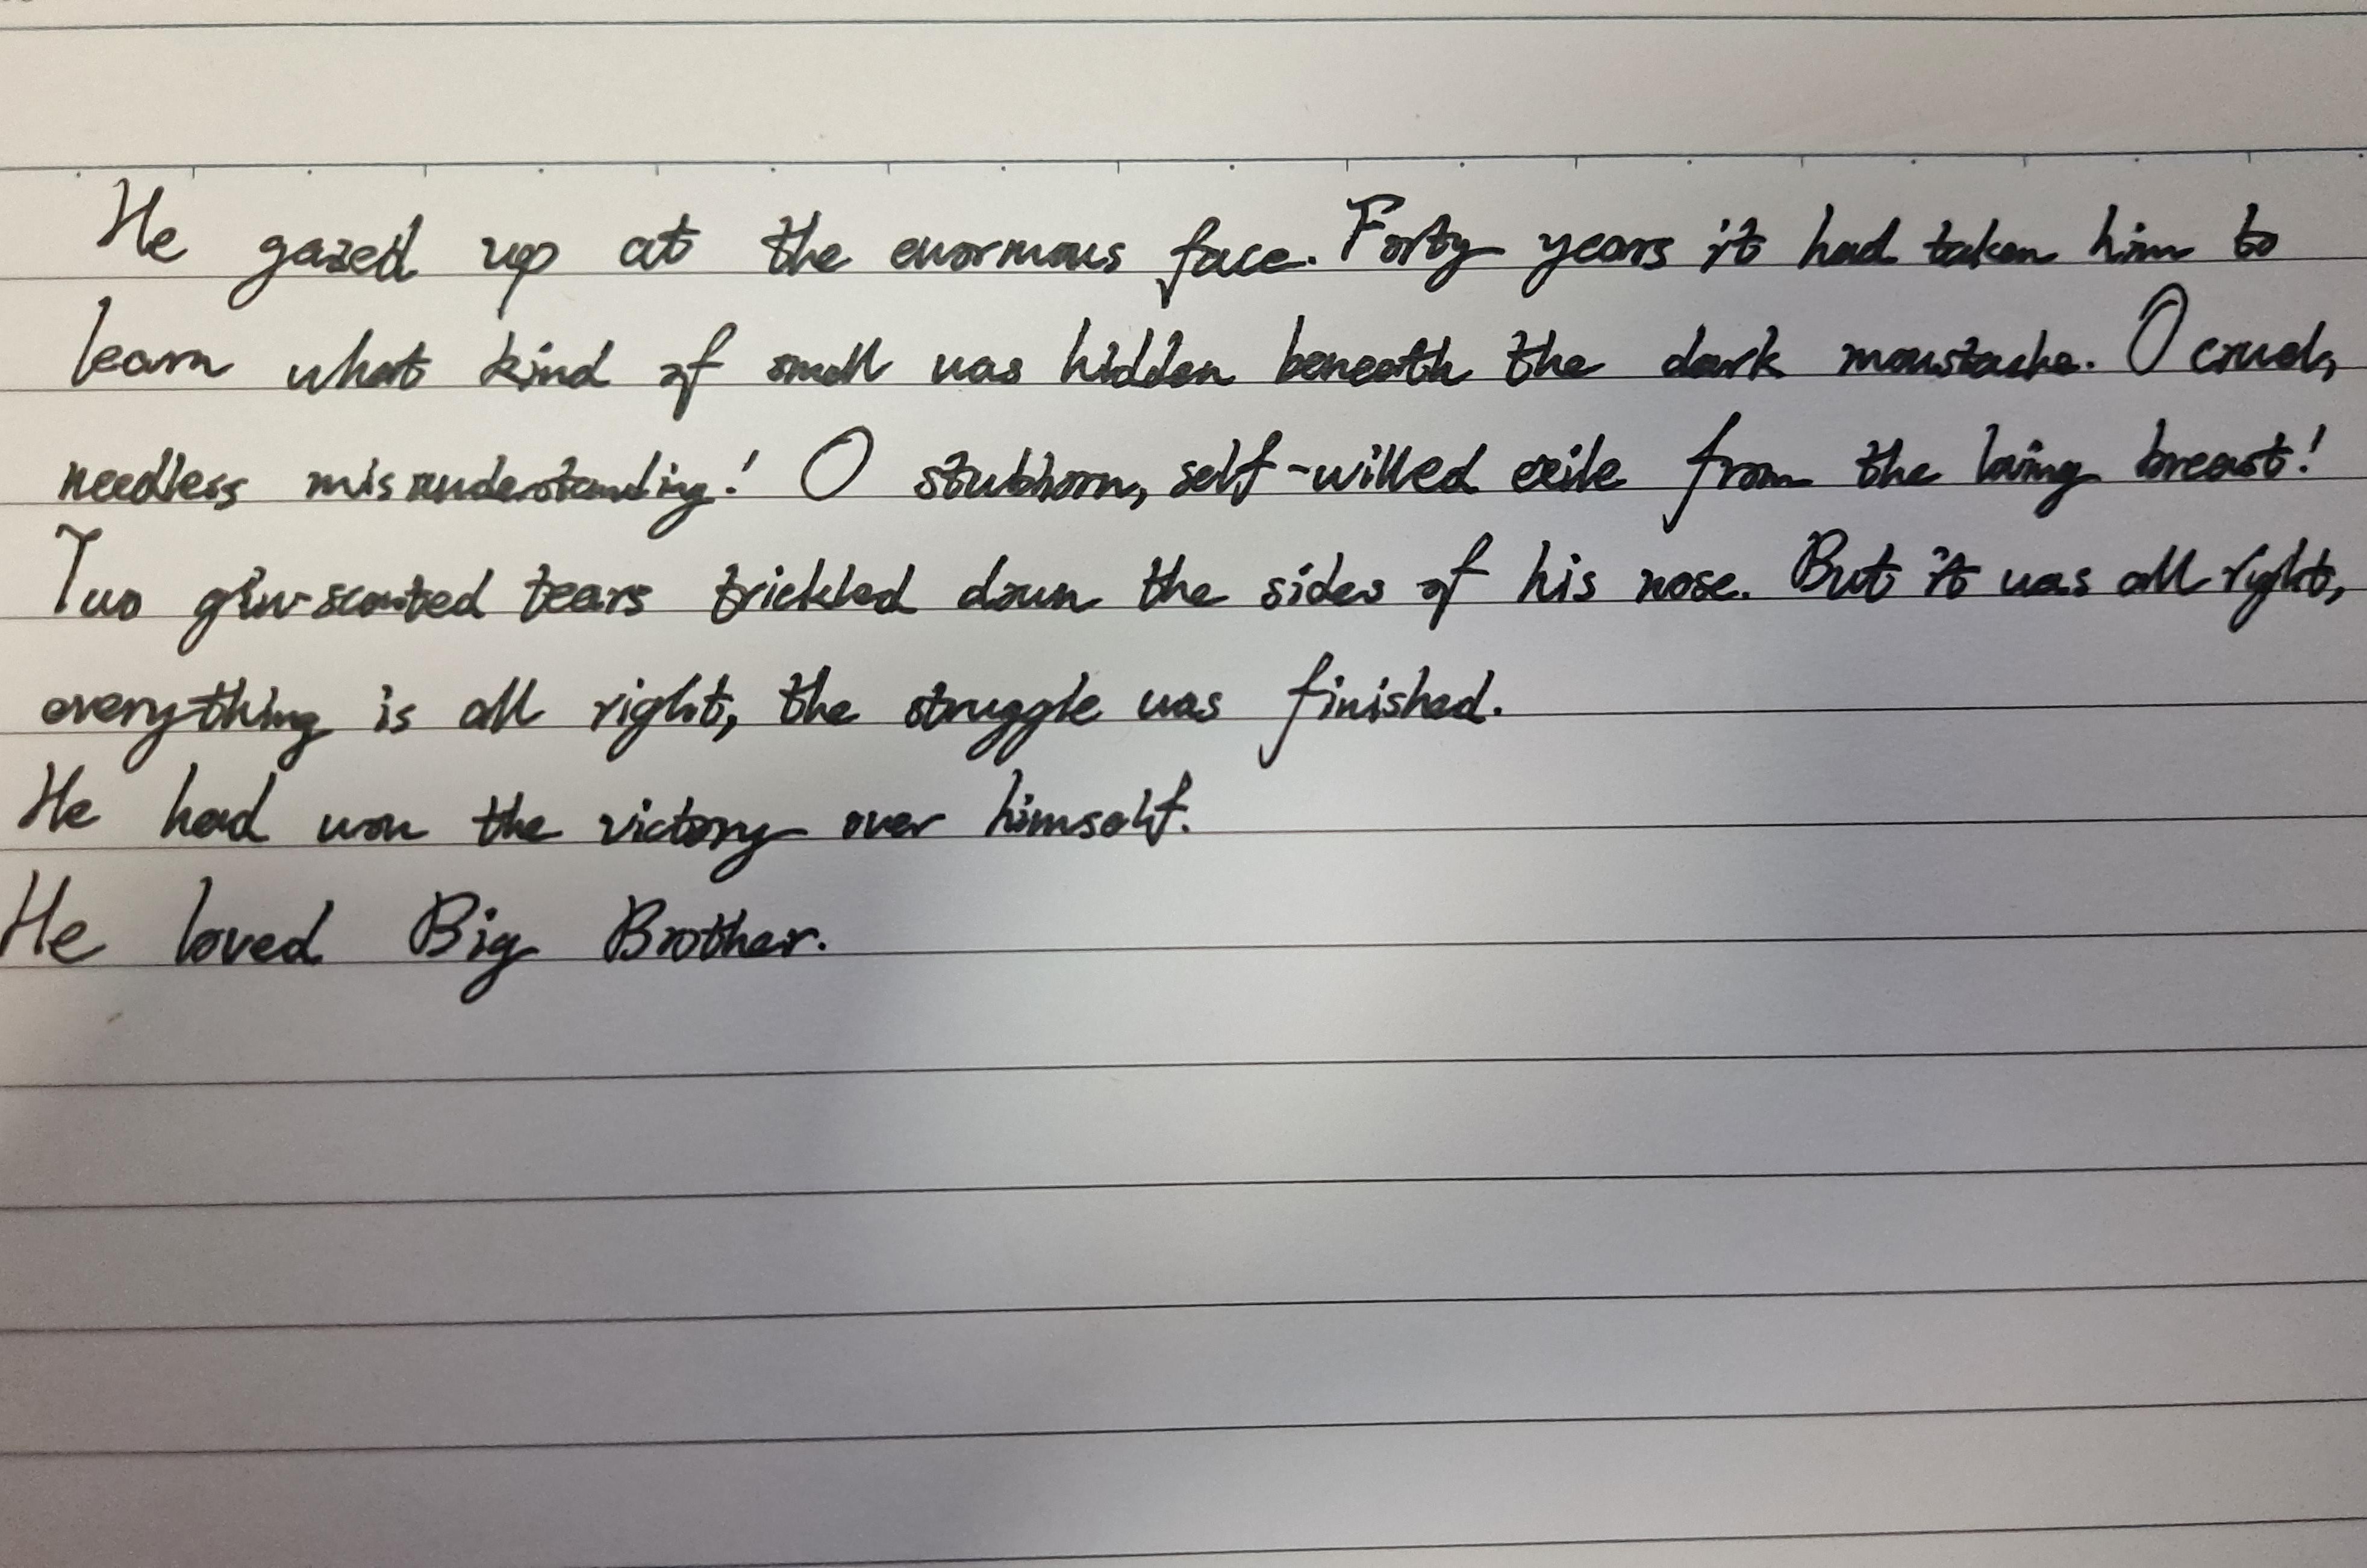 He gazed up at the enormous face. Forty years it had taken him to
learn what kind of small was hidden beneath the dark moustache. O cruel,
needless misunderstanding! O stubborn, self-willed exile from the loving breast!
Two gin-scented tears trickled down the sides of his nose. But it was all right,
everything is all right, the struggle was finished.
He had won the victory over himself.
He loved Big Brother.